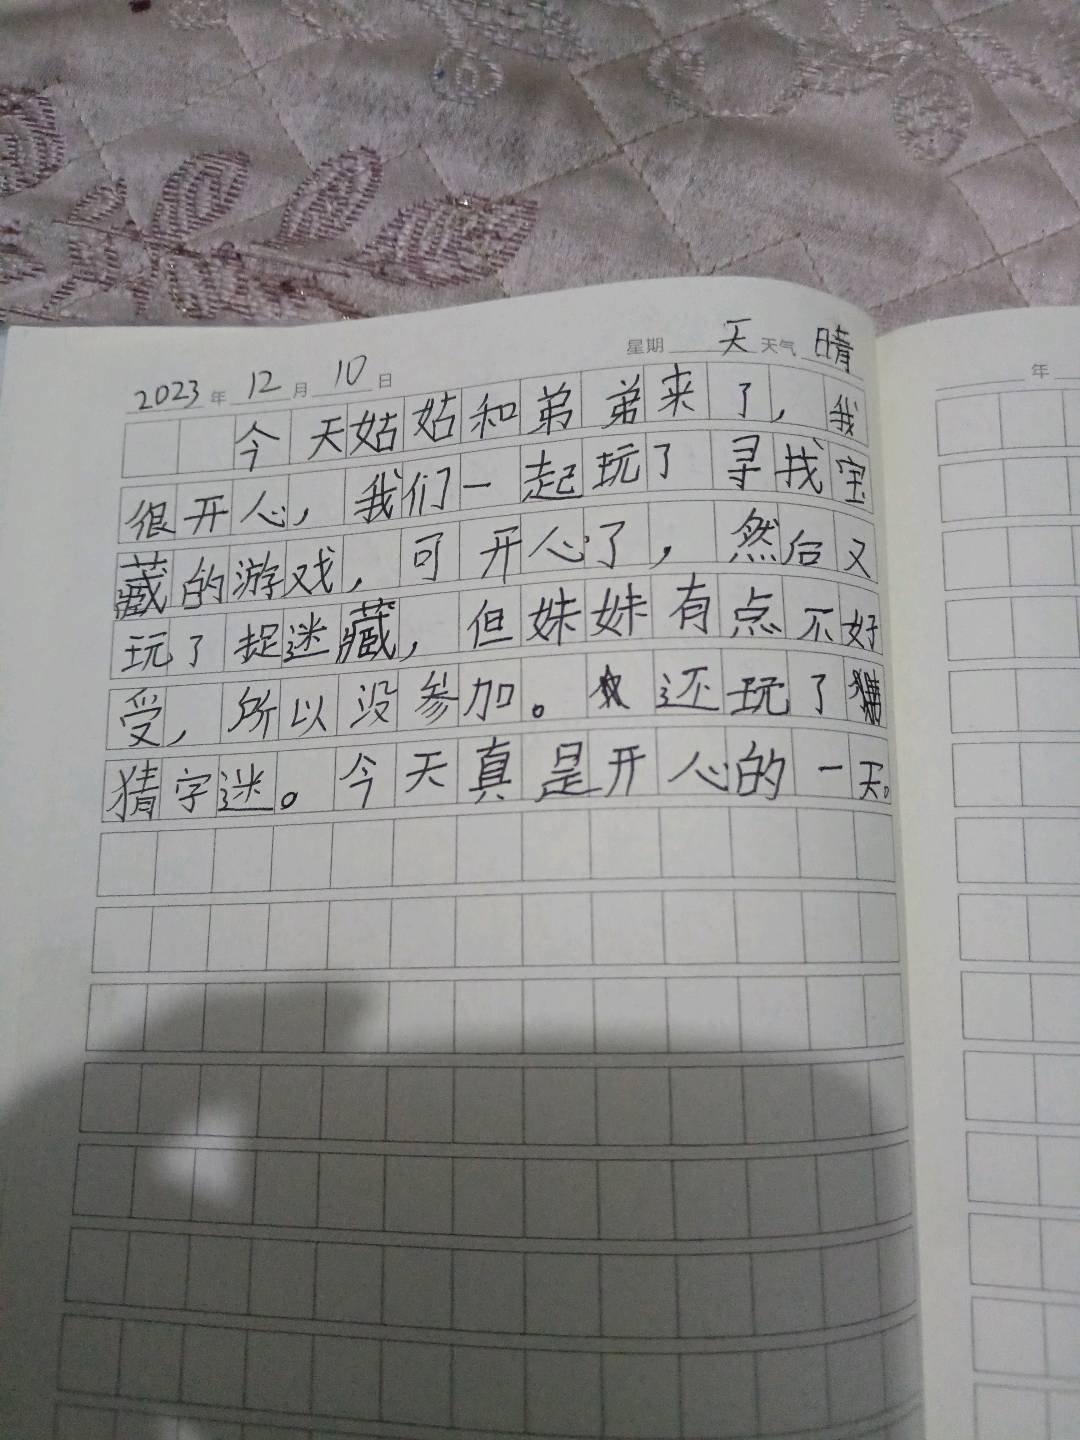 2023年12月10日 星期天 天气晴
今天姑姑和弟弟来了,我
很开心,我们一起玩了寻找宝
藏的游戏,可开心了,然后又
玩了捉迷藏,但妹妹有点不好
受,所以没参加。还玩了
猜字迷。今天真是开心的一天。
年